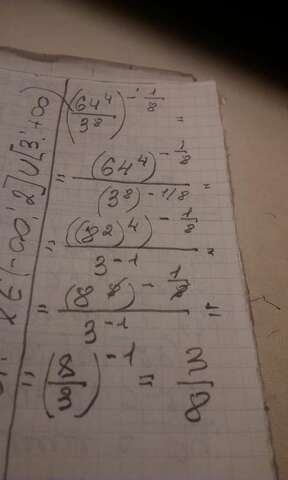 (64⁴/3⁸)^-1/8 =
= (64⁴)^-1/8 / (3⁸)^-1/8 =
= ((8²)⁴)^-1/8 / 3^-1 =
= (8⁸)^-1/8 / 3^-1 =
= (8/3)^-1 = 3/8
x ∈ (-∞; 2] ∪ [3; +∞)